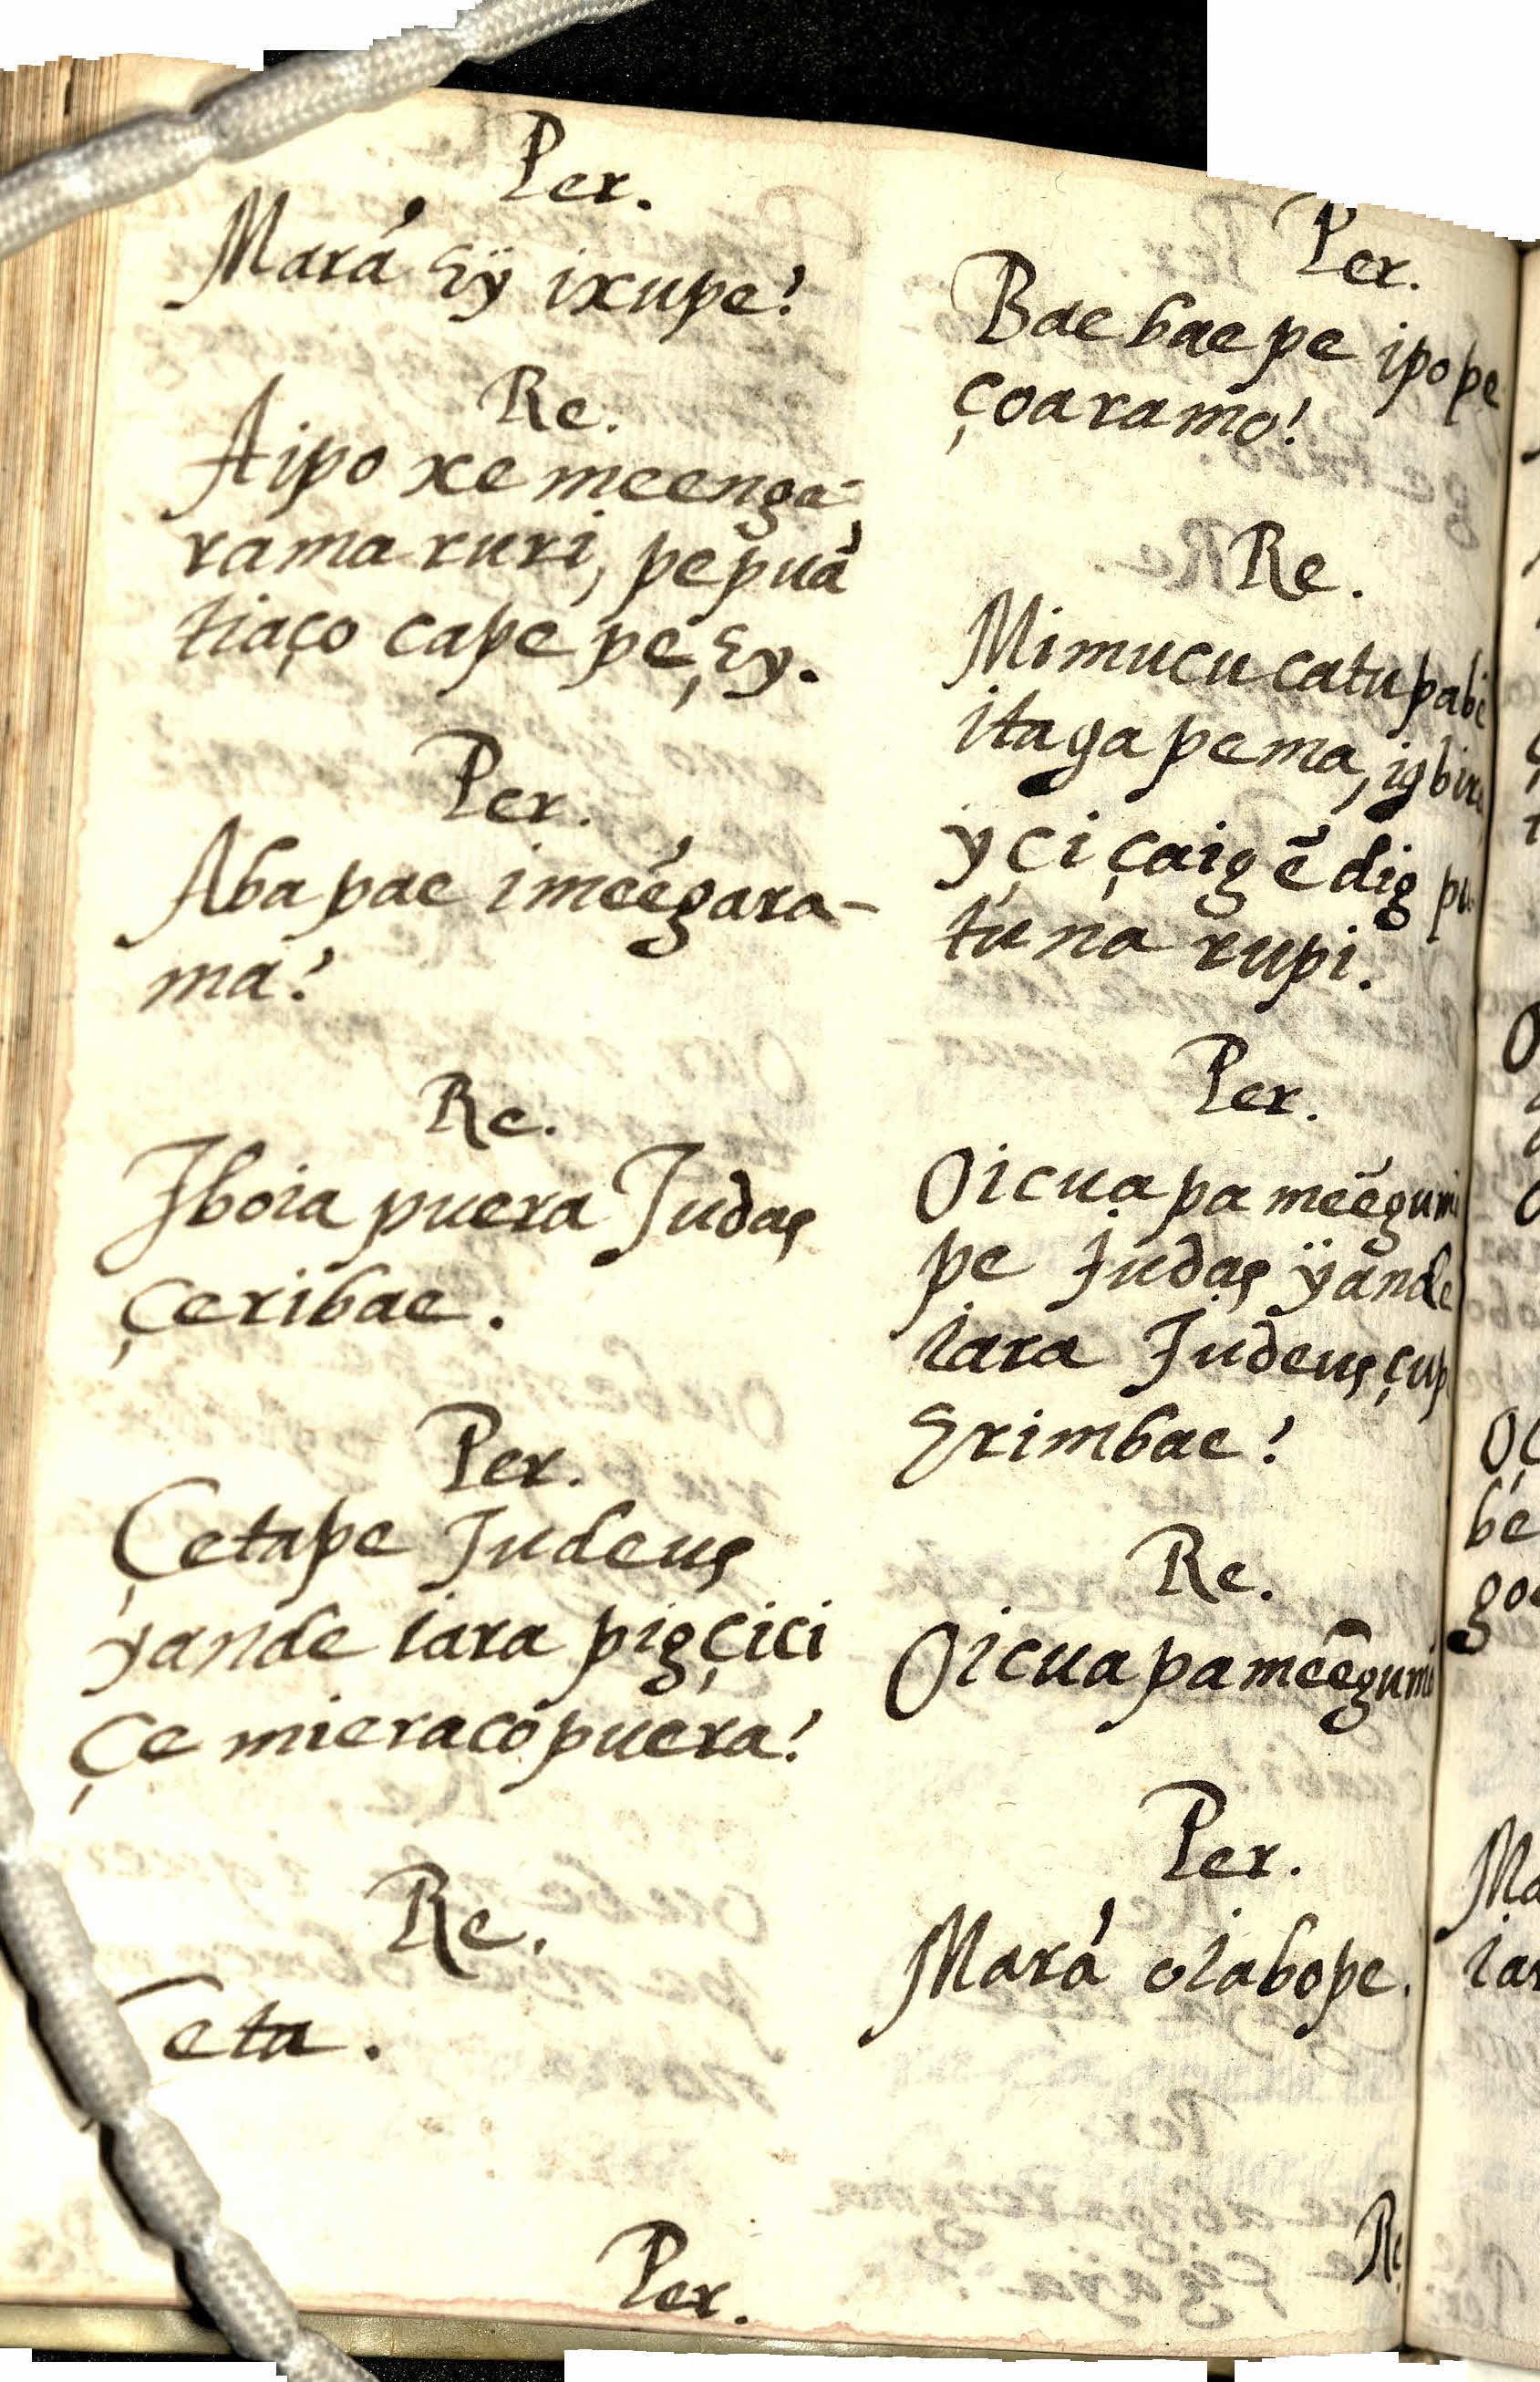 Per.
Mará Eÿ ixupe?
Re.
Aipo xe meenga-
rama ruri, pepuá
tiaço cape pe, Ey.
Per.
Aba pae imeégara-
ma?
Re.
Iboia puera Judas
çeribae.
Per.
Çetape Judeus
yande iara pigçici
çe mieracó puera?
Re.
Çeta.
Per.
Per.
Bae bae pe ipope
çoaramo?
Re.
Mimucu catu pabe
itaga pema,
yçi çaig ẽ dig
tuna rupi.
Per.
Oicua pa meẽgum
pe Judas ÿande
iara Judeus çup
Erimbae?
Re.
Oicua pa meẽgum
Per.
Mará oiabope.
Re